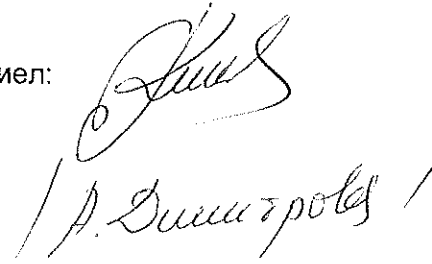 иел:
/ А. Димитрова /